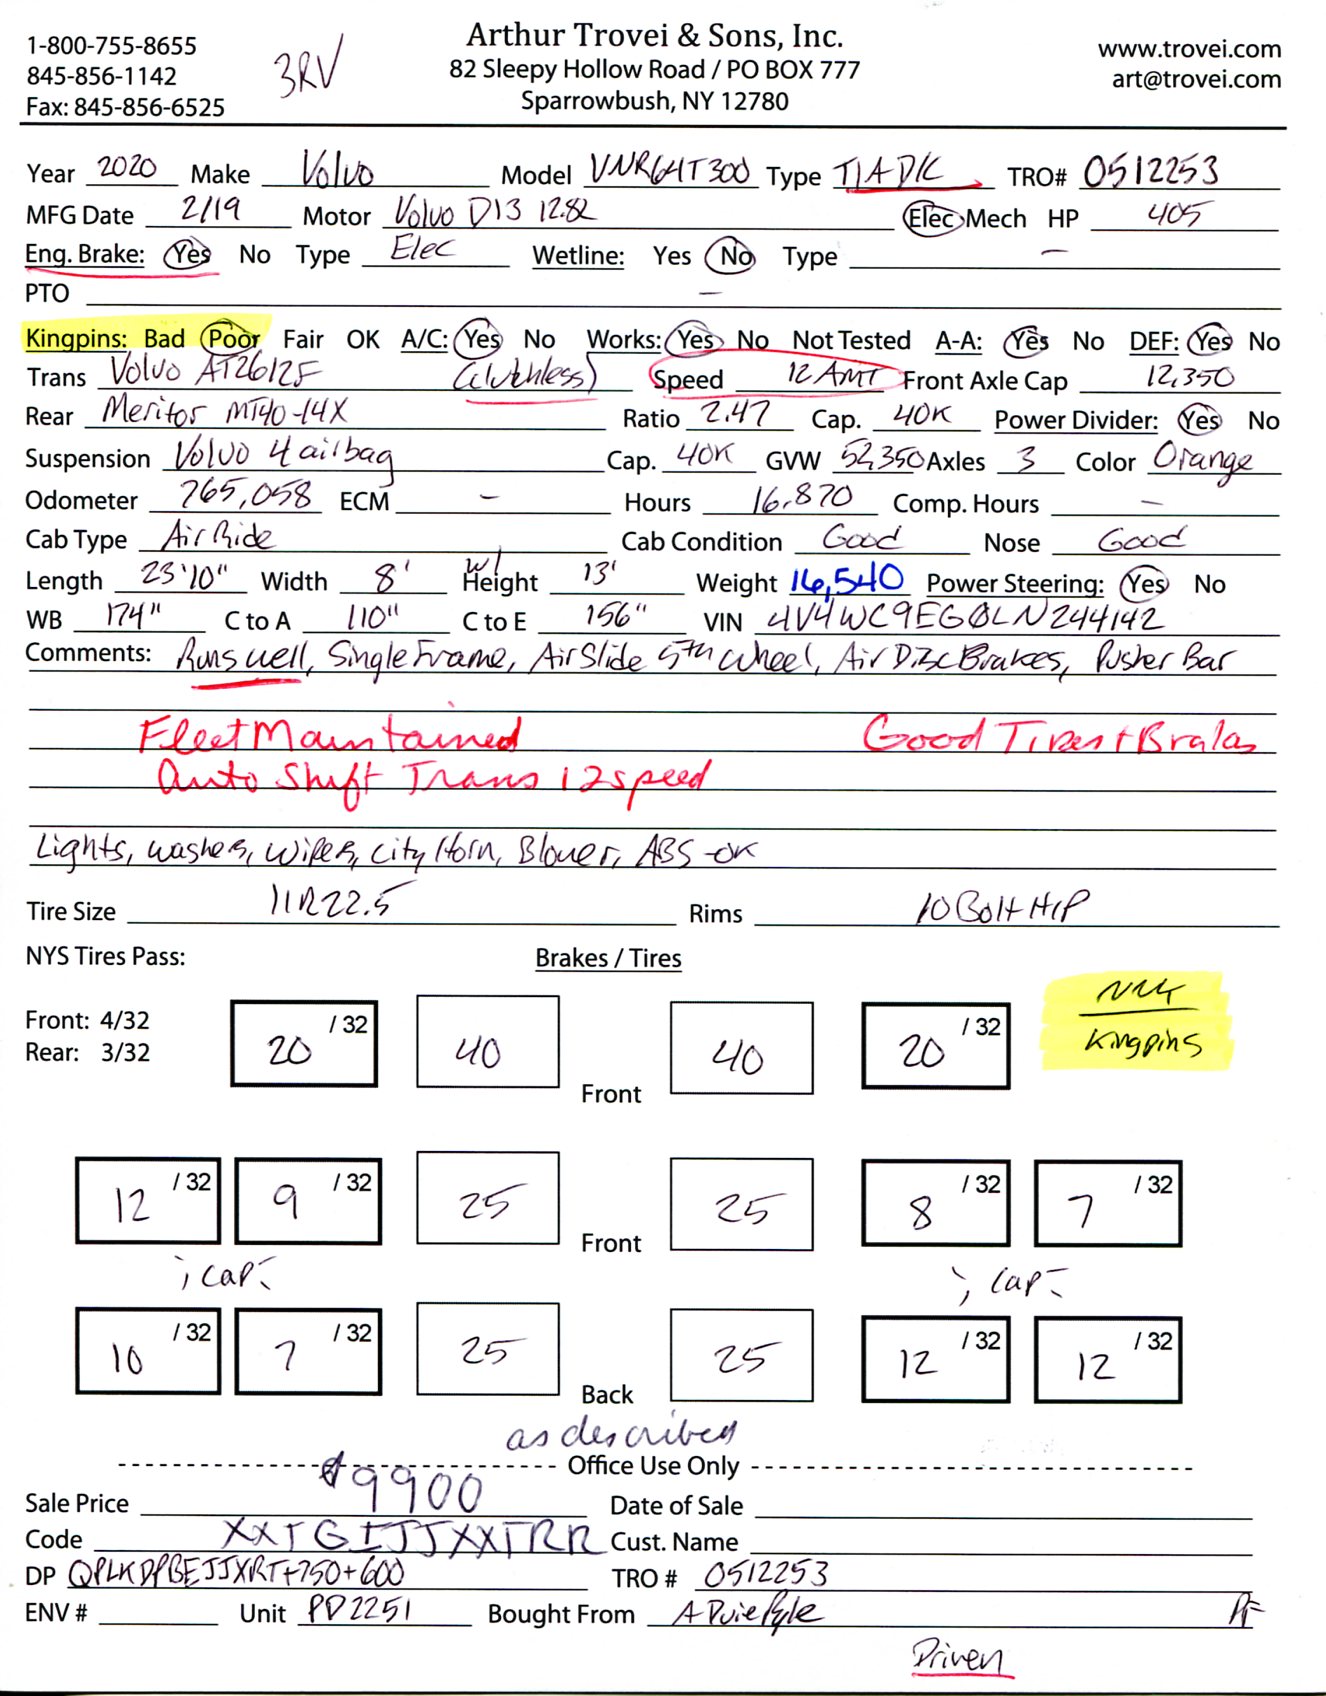 1-800-755-8655
845-856-1142
Fax: 845-856-6525
3RV
Arthur Trovei & Sons, Inc.
82 Sleepy Hollow Road / PO BOX 777
Sparrowbush, NY 12780
www.trovei.com
art@trovei.com
Year 2020 Make Volvo Model VNR64T300 Type T/A D/C TRO# 0512253
MFG Date 2/19 Motor Volvo D13 12.8L Elec Mech HP 405
Eng. Brake: Yes No Type Elec Wetline: Yes No Type —
PTO —
Kingpins: Bad Poor Fair OK A/C: Yes No Works: Yes No Not Tested A-A: Yes No DEF: Yes No
Trans Volvo AT2612F (Clutchless) Speed 12 AMT Front Axle Cap 12,350
Rear Meritor MT40-14X Ratio 2.47 Cap. 40K Power Divider: Yes No
Suspension Volvo 4 airbag Cap. 40K GVW 52,350 Axles 3 Color Orange
Odometer 765,058 ECM — Hours 16,870 Comp. Hours —
Cab Type Air Ride Cab Condition Good Nose Good
Length 23'10" Width 8' w/ Height 13' Weight 16,540 Power Steering: Yes No
WB 174" C to A 110" C to E 156" VIN 4V4WC9EG0LN244142
Comments: Runs well, Single Frame, Air Slide 5th Wheel, Air Disc Brakes, Pusher Bar
Fleet Maintained Good Tires + Brakes
Auto Shift Trans 12 speed
Lights, washers, wipers, city Horn, Blower, ABS -OK
Tire Size 11R22.5 Rims 10 Bolt H/P
NYS Tires Pass: Brakes / Tires
Front: 4/32
Rear: 3/32
20 /32 40 Front 40 20 /32
Kingpins
12 /32 9 /32 25 Front 25 8 /32 7 /32
; cap- ; cap-
10 /32 7 /32 25 Back 25 12 /32 12 /32
as described
Office Use Only
Sale Price $9900 Date of Sale
Code XXTGIJJXXTRR Cust. Name
DP QPLKDPBEJJXRT+750+600 TRO # 0512253
ENV # Unit PD2251 Bought From A Duie Pyle
Driven